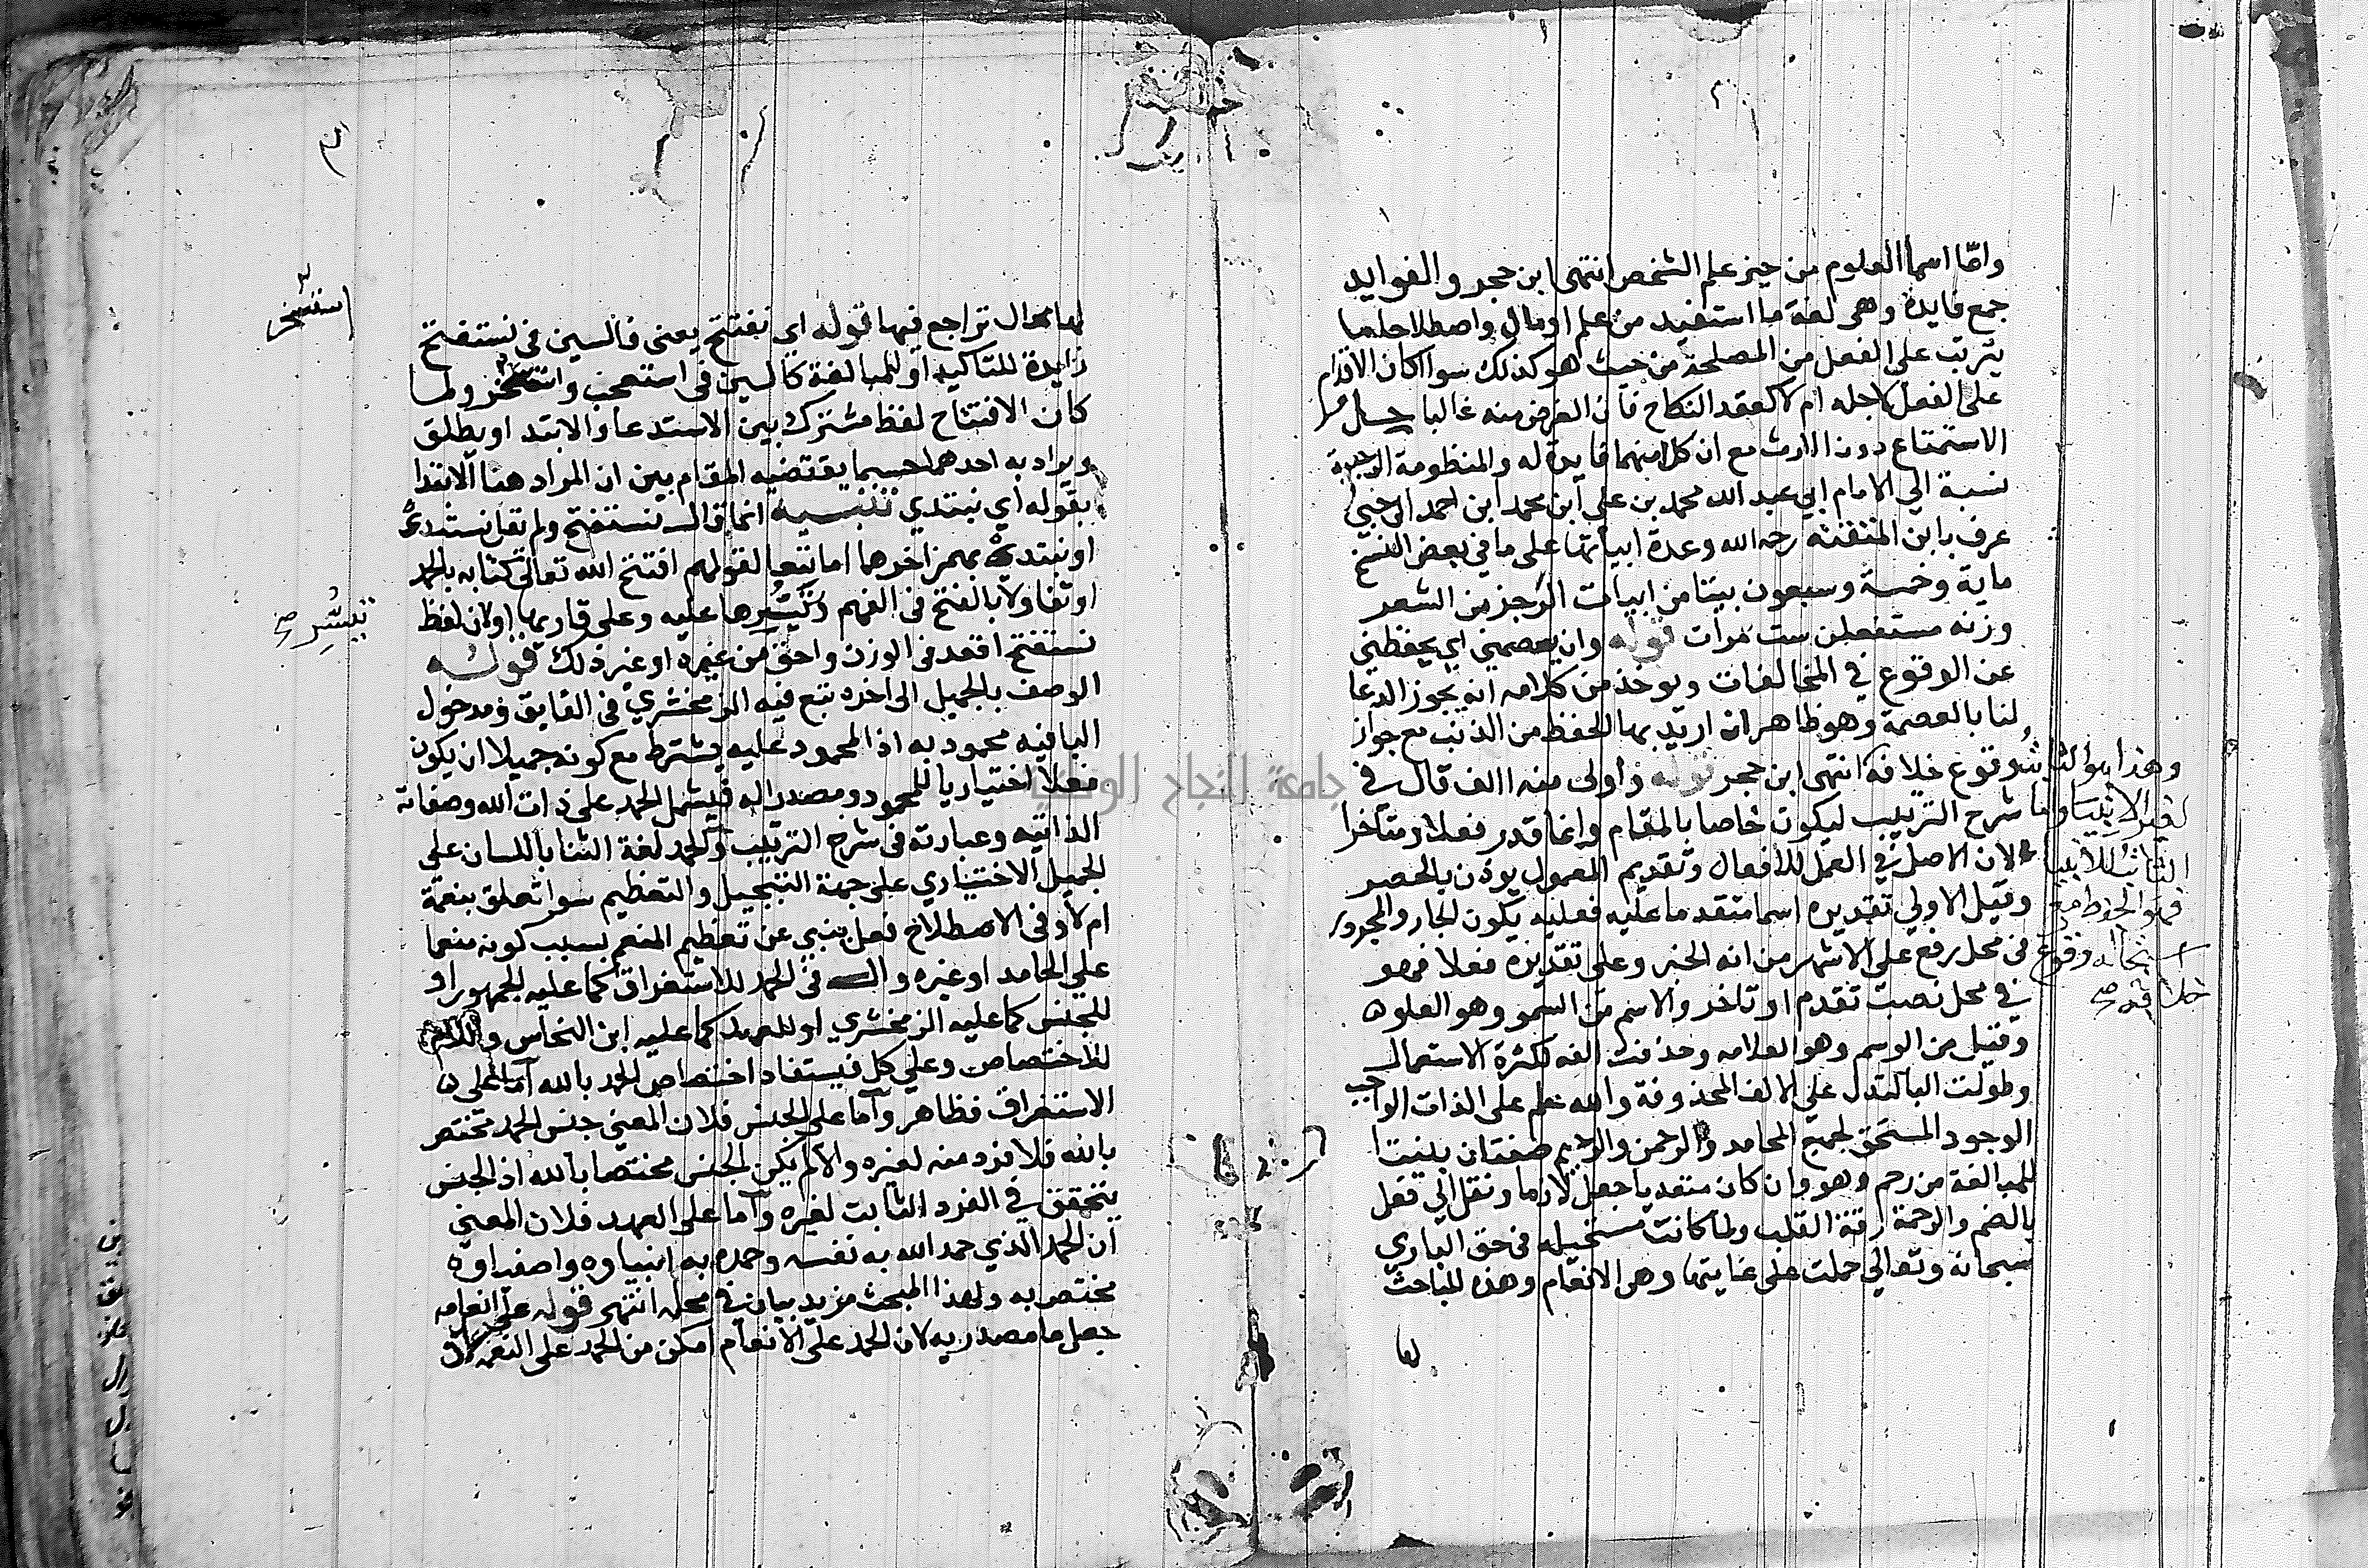 واما اسما العلوم من حيز علم الشخص انتهى ابن حجر والفوايد
جمع فايدة وهي لغة ما استفيد من علم او مال واصطلاحا ما
يترتب على الفعل من المصلحة من حيث هو كذلك سوا كان الاقدام
على الفعل لاجله ام لا كعقد النكاح فان الغرض منه غالبا حل
الاستمتاع دون الارث مع ان كلا منهما فايدة له والمنظومة الرحبية
نسبة الي الامام ابي عبد الله محمد بن علي ابن محمد ابن احمد الرحبي
عرف بابن المتقنة رحمه الله وعدة ابياتها على ما في بعض النسخ
ماية وخمسة وسبعون بيتا من ابيات الرجز من الشعر
وزنه مستفعلن ست مرات قوله وان يعصمني اي يحفظني
عن الوقوع في المخالفات ويوخذ من كلامه انه يجوز الدعا
لنا بالعصمة وهو ظاهر ان اريد بها الحفظ من الذنب مع جواز
وقوع خلافه انتهى ابن حجر قوله واولى منه الف قال في
شرح الترتيب ليكون خاصا بالمقام وانما قدر فعلا ومتاخرا
لان الاصل في العمل للافعال وتقديم المعمول يوذن بالحصر
وقيل الاولي تقديره اسما متقدما عليه فعليه يكون الجار والمجرور
في محل رفع على الاشهر من انه الخبر وعلى تقديره فعلا فهو
في محل نصب تقدم او تاخر والاسم من السمو وهو العلو
وقيل من الوسم وهو العلامه وحذفت الفه لكثرة الاستعمال
وطولت البا لتدل علي الالف المحذوفة والله علم على الذات الواجب
الوجود المستحق لجميع المحامد والرحمن والرحيم صفتان بنيتا
للمبالغة من رحم وهو وان كان متعديا جعل لازما ونقل الي فعل
بالضم والرحمة رقة القلب ولما كانت مستحيله في حق الباري
سبحانه وتعالي حملت على غايتها وهي الانعام وهذه المباحث
لها
وهذا هو الثابت
لغير الانبيا واما
الثابت للانبيا
فهو الحفظ مع
استحالة وقوع
خلافه صح
٣
لها محال تراجع فيها قوله اي نفتتح يعني فالسين في نستفتح
زايدة للتاكيد او للمبالغة كالسين في استعجب واستسخر ولما
كان الافتتاح لفظ مشترك بين الاستدعا والابتدا ويطلق
ويراد به احدهما حسبما يقتضيه المقام بين ان المراد هنا الابتدا
بقوله اي نبتدي تنبيه انما قال نستفتح ولم يقل نستبدئ
او نبتدئ بهمز اخرهما اما تبعا لقولهم افتتح الله تعالى كتابه بالحمد
او تفاولا بالفتح في الفهم وتيسرها عليه وعلى قاريها او لان لفظ
نستفتح اقعد في الوزن واحق من غيره او غير ذلك قوله
الوصف بالجميل الى اخره تبع فيه الزمخشري في الفايق ومدخول
البا فيه محمود به اذ المحمود عليه يشترط مع كونه جميلا ان يكون
فعلا اختياريا للمحمود ومصدر اله فيشمل الحمد على ذات الله وصفاته
الذاتيه وعبارته في شرح الترتيب والحمد لغة الثنا باللسان على
الجميل الاختياري على جهة التبجيل والتعظيم سوا تعلق بنعمة
ام لا وفي الاصطلاح فعل ينبي عن تعظيم المنعم بسبب كونه منعما
علي الحامد او غيره وال في الحمد للاستغراق كما عليه الجمهور او
للجنس كما عليه الزمخشري او للعهد كما عليه ابن النحاس واللام
للاختصاص وعلي كل فيستفاد اختصاص الحمد بالله اما على
الاستغراق فظاهر واما على الجنس فلان المعني جنس الحمد مختص
بالله فلا فرد منه لغيره والا لم يكن الجنس مختصا بالله اذ الجنس
يتحقق في الفرد الثابت لغيره واما على العهد فلان المعنى
ان الحمد الذي حمد الله به نفسه وحمده به انبياوه واصفياوه
مختص به ولهذا المبحث مزيد بيان في محله انتهى قوله على انعامه
جعل ما مصدريه لان الحمد على الانعام امكن من الحمد على النعمة لان
استسخر
تيسر صح
جامعة النجاح الوطنية